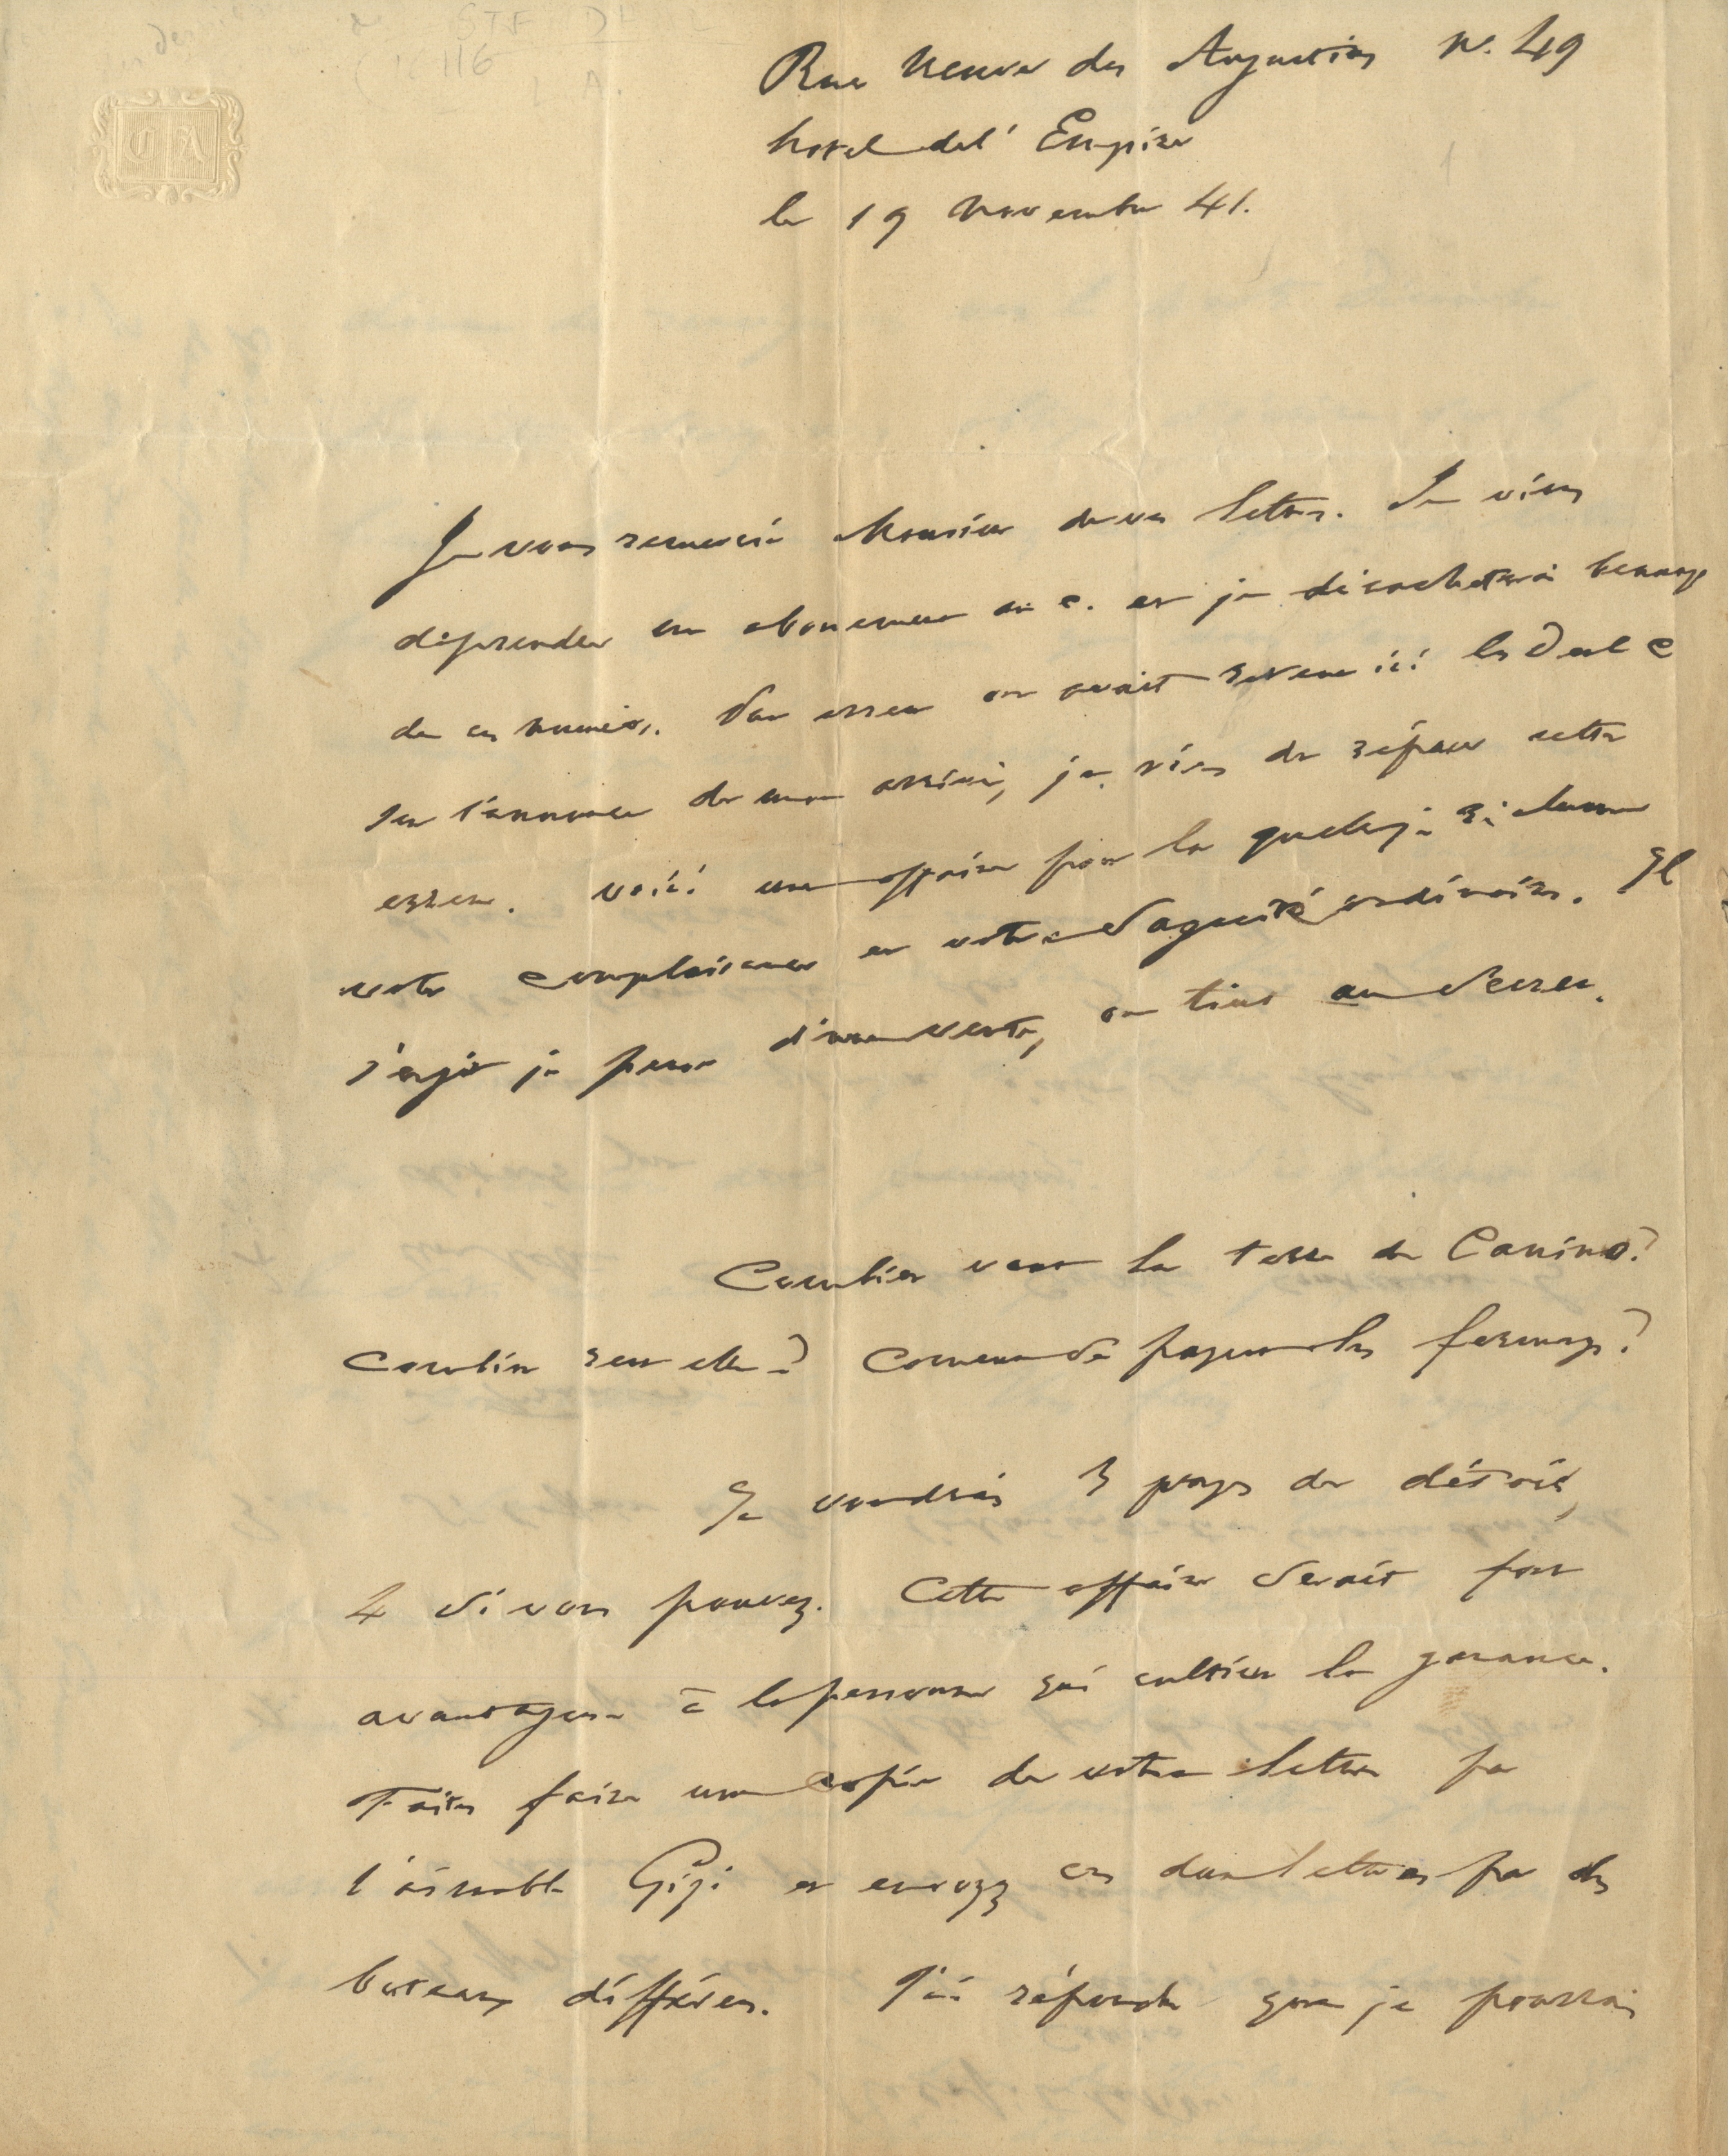 Rue Neuve des Augustins N. 49
hotel del' Empire
le 19 Novembre 41.
Je vous remercie Monsieur de vos lettres. Je viens
de prendre un abonement au c. et je décacheterai beaucoup
de ces numéros. Par erreur on avait retenu ici les D et C
sur l'annonce de mon arrivée, je viens de réparer cette
erreur. voici une affaire pour la quelle je réclame
votre complaisance et votre Sagacité ordinaires. Il
s'agit je pense d'une vente, on tient au Secret.
Combien vaut la terre de Canino?
Combien rend elle? Comment Se payent les fermages?
Je voudrais 3 pages de détails,
4 Si vous pouvez. Cette affaire Serait fort
avantageuse à la personne qui cultive la garance.
Faites faire une copie de votre lettre par
l'aimable Gigi et envoyez ces deux lettres par des
bureaux différens. J'ai répondu que je pourrais